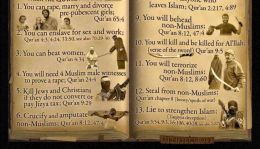 1. You can rape, marry and divorce
pre-pubescent girls.
Qur'an 65:4
2. You can enslave for sex and work:
Qur'an 4:3, 4:24,
3. You can beat women,
Qur'an 4:34
4. You will need 4 Muslim male witnesses
to prove a rape:
5. Kill Jews and Christians
if they do not convert or
pay Jizya tax: Qur'an 9:29
6. Crucify and amputate
non-Muslims: Qur'an 8:12, 47:4
leaves Islam: Qur'an 2:217, 4:89
9. You will behead
non-Muslims:
Qur'an 8:12, 47:4
10. You will kill and be killed for Al'lah:
(verse of the sword) Qur'an 9:5
11. You will terrorize
non-Muslims:
Qur'an 8:12, 8:60
12. Steal from non-Muslims:
Qur'an chapter 8
13. Lie to strengthen Islam:
Qur'an 3:54, 9:3, 16:106, 40:28